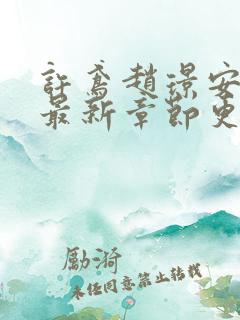 許鳶趙璟安
最新章節更
勵漪
未經同意禁止轉載